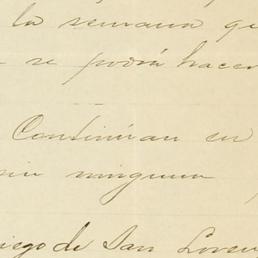 la semana que
se podrá hacer
Continúan en
sin ninguna
Diego de San Loren